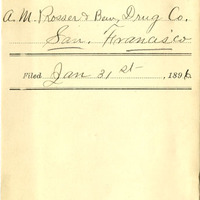 A. M. Rosser & Bew, Drug Co.
San. Francisco
Filed Jan 31st , 1896